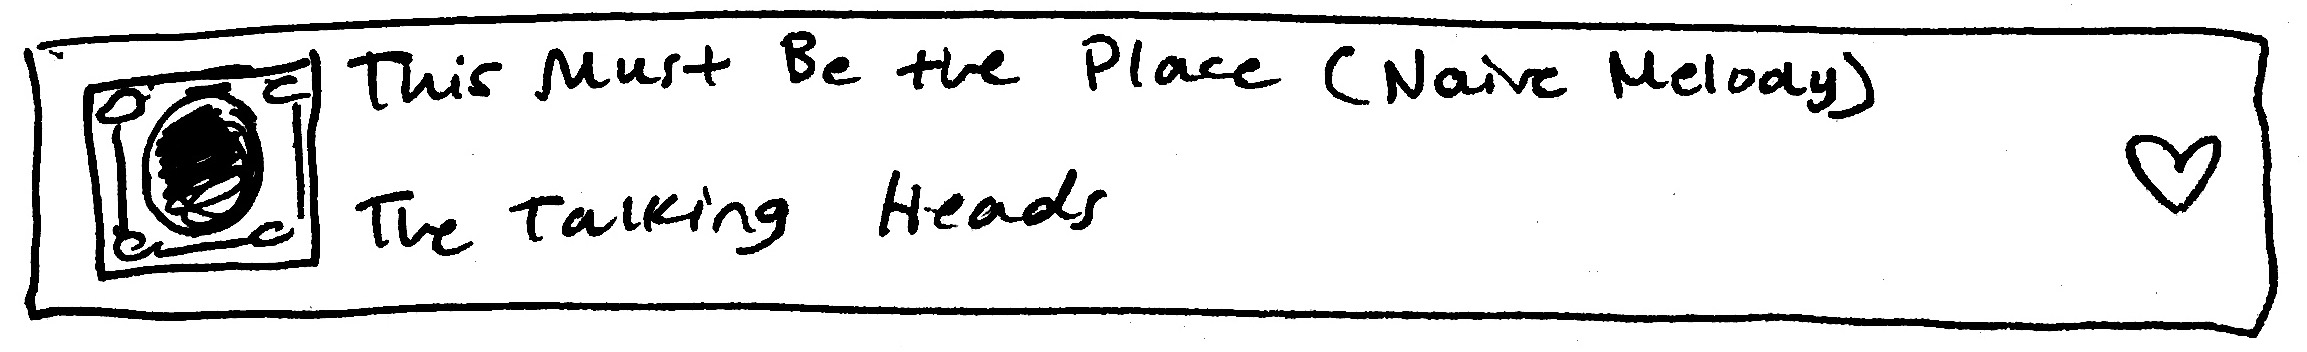 This Must Be the Place (Naive Melody)
The Talking Heads